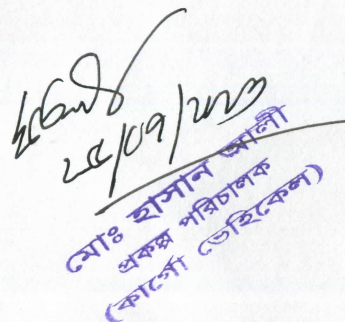 ২৫/০৭/২০২৩
মোঃ হাসান আলী
প্রকল্প পরিচালক
(কার্গো ভেহিকেল)